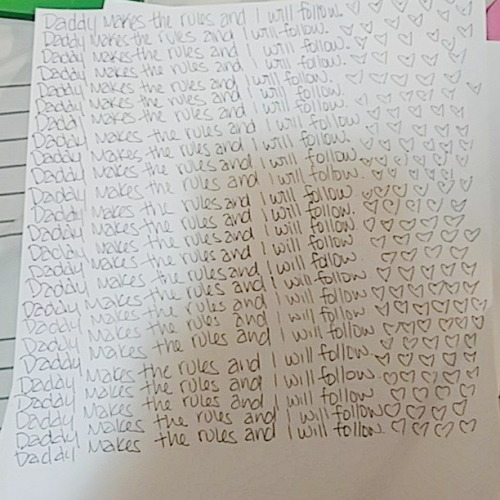 Daddy makes the rules and I will follow. ♡♡♡♡♡♡
Daddy makes the rules and I will follow. ♡♡♡♡♡
Daddy makes the rules and I will follow. ♡♡♡♡♡
Daddy makes the rules and I will follow. ♡♡♡♡♡
Daddy makes the rules and I will follow. ♡♡♡♡♡
Daddy makes the rules and I will follow. ♡♡♡♡♡
Daddy makes the rules and I will follow. ♡♡♡♡♡
Daddy makes the rules and I will follow. ♡♡♡♡♡
Daddy makes the rules and I will follow. ♡♡♡♡♡
Daddy makes the rules and I will follow ♡♡♡♡♡
Daddy makes the rules and I will follow. ♡♡♡♡♡
Daddy makes the rules and I will follow ♡♡♡♡♡
Daddy makes the rules and I will follow. ♡♡♡♡♡
Daddy makes the rules and I will follow. ♡♡♡♡♡
Daddy makes the rules and I will follow ♡♡♡♡♡
Daddy makes the rules and I will follow. ♡♡♡♡♡
Daddy makes the rules and I will follow ♡♡♡♡♡
Daddy makes the rules and I will follow ♡♡♡♡♡♡
Daddy makes the rules and I will follow ♡♡♡♡♡
Daddy makes the rules and I will follow. ♡♡♡♡♡
Daddy makes the rules and I will follow. ♡♡♡♡♡
Daddy makes the rules and I will follow. ♡♡♡♡♡
Daddy makes the rules and I will follow ♡♡♡♡♡
Daddy makes the rules and I will follow. ♡♡♡♡